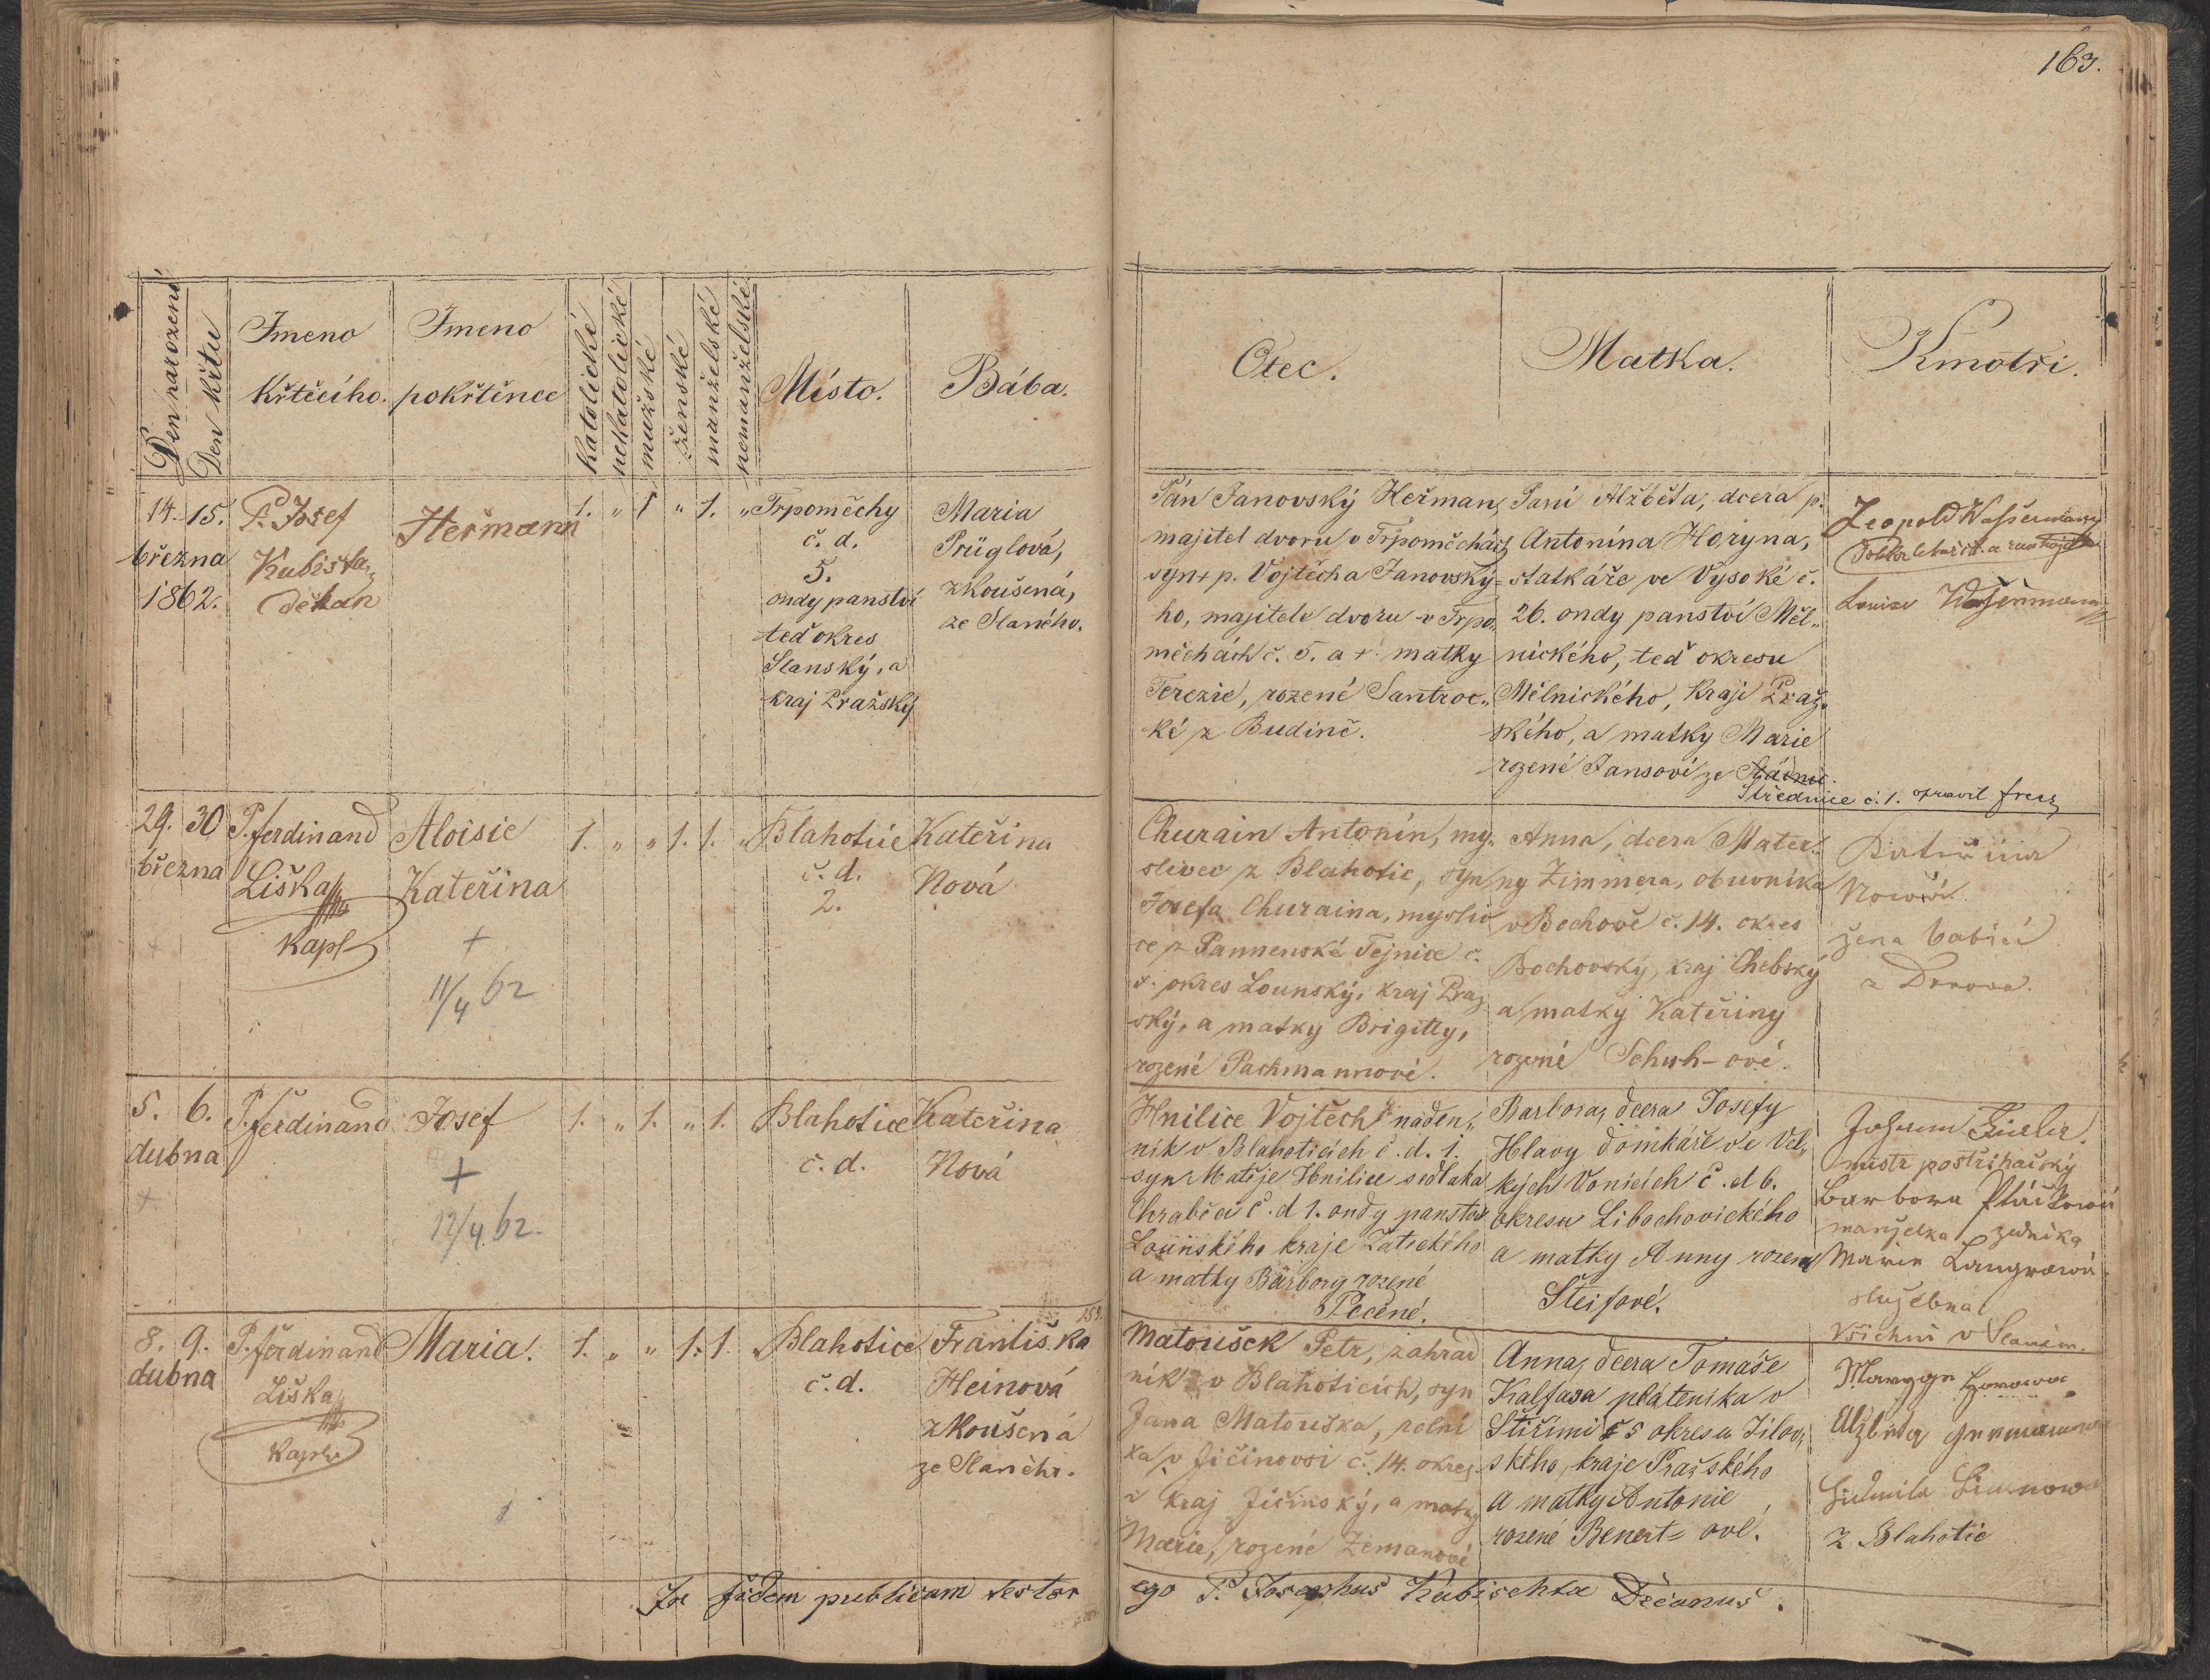 163.
Den narození
Den křtu
Jmeno
křtěcího.
Jmeno
pokřtěnce
katolické
nekatolické
mužské
ženské
manželské
nemanželské
Místo.
Bába.
Otec.
Matka.
Kmotři.
14. 15.
března
1862.
P. Josef
Kubišta,
děkan
Heřmann
1. „ 1 „ 1. „
Trpoměchy
č. d.
5.
ondy panství
teď okres
Slanský, a
kraj Pražský
Maria
Prüglová,
zkoušená,
ze Slaného.
Pán Janovský Heřman,
majitel dvoru v Trpoměchách,
syn + p. Vojtěcha Janovský=
ho, majitele dvoru v Trpo„
měchách č. 5. a + matky
Terezie, rozené Santroc„
ké z Budině.
Paní Alžběta, dcera p.
Antonína Horyna,
statkáře ve Vysoké č.
26. ondy panství Měl„
nického, teď okresu
Mělnického, kraje Praž„
ského, a matky Marie
rozené Jansoví ze
Střednice č. 1. opravil
Leopold Waßermann
Louise
29. 30
března
P. ferdinand
Liška
Kapl
Aloisie
Kateřina
+
11/4 62
1. „ „ 1. 1. „
Blahotice
č. d.
2.
Kateřina
Nová
Churain Antonín, my„
slivec z Blahotic, syn
Josefa Churaina, mysliv
ce z Pannenské Tejnice č.
okres Lounský, kraj Praž
ský, a matky Brigitty,
rozené Pachmannové.
Anna, dcera Mater„
ny Zimmera, obuvníka
v Bochově č. 14. okres
Bochovský, kraj Chebský
a matky Kateřiny
rozené Schuh-ové.
Kateřina
Nowá
žena
5. 6.
dubna
+
P. ferdinand
Josef
+
12/4 62.
1. „ 1. „ 1.
Blahotice
č. d.
Kateřina
Nová
Hnilice Vojtěch náden„
ník v Blahoticích č. d. 1.
syn Matěje Hnilice sedláka
Chrabče č. d 1. ondy panství
Lounského kraje Žateckého
a matky Barbory rozené
Pečené.
Barbora, dcera Josefy
Hlavy domkáře ve Vel„
kých Vonicích č. d 6.
okresu Libochovického
a matky Anny rozené
Šteifové.
Johann
mistr postřihačský
Barbora Ptáčkowá
manželka
Marie Langrowá
služebna
všichni v Slaném.
8. 9.
dubna
P. ferdinand
Liška
Kapl.
Maria.
1. „ „ 1. 1.
Blahotice
č. d.
Františka
Heinová
zkoušená
ze Slaného.
Matoušek Petr, zahrad
ník v Blahoticích, syn
Jana Matouška, rolní
ka v Jičínovsi č. 14. okres
kraj Jičínský, a matky
Marie, rozené Zemanové
Anna, dcera Tomáše
Kalfasa plátenika v
Štiřimi č 5 okresu Jílov„
ského, kraje Pražského
a matky Antonie,
rozené Benert=ové.
Alžběta
Ludmila
z Blahotic
In fidem publicam testor ego P. Josephus Kubischta Decanus.